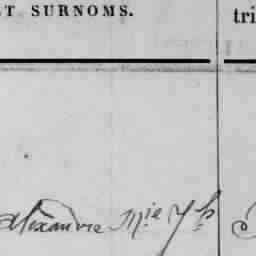 ET SURNOMS.
tri
Alexandre Mie Jh